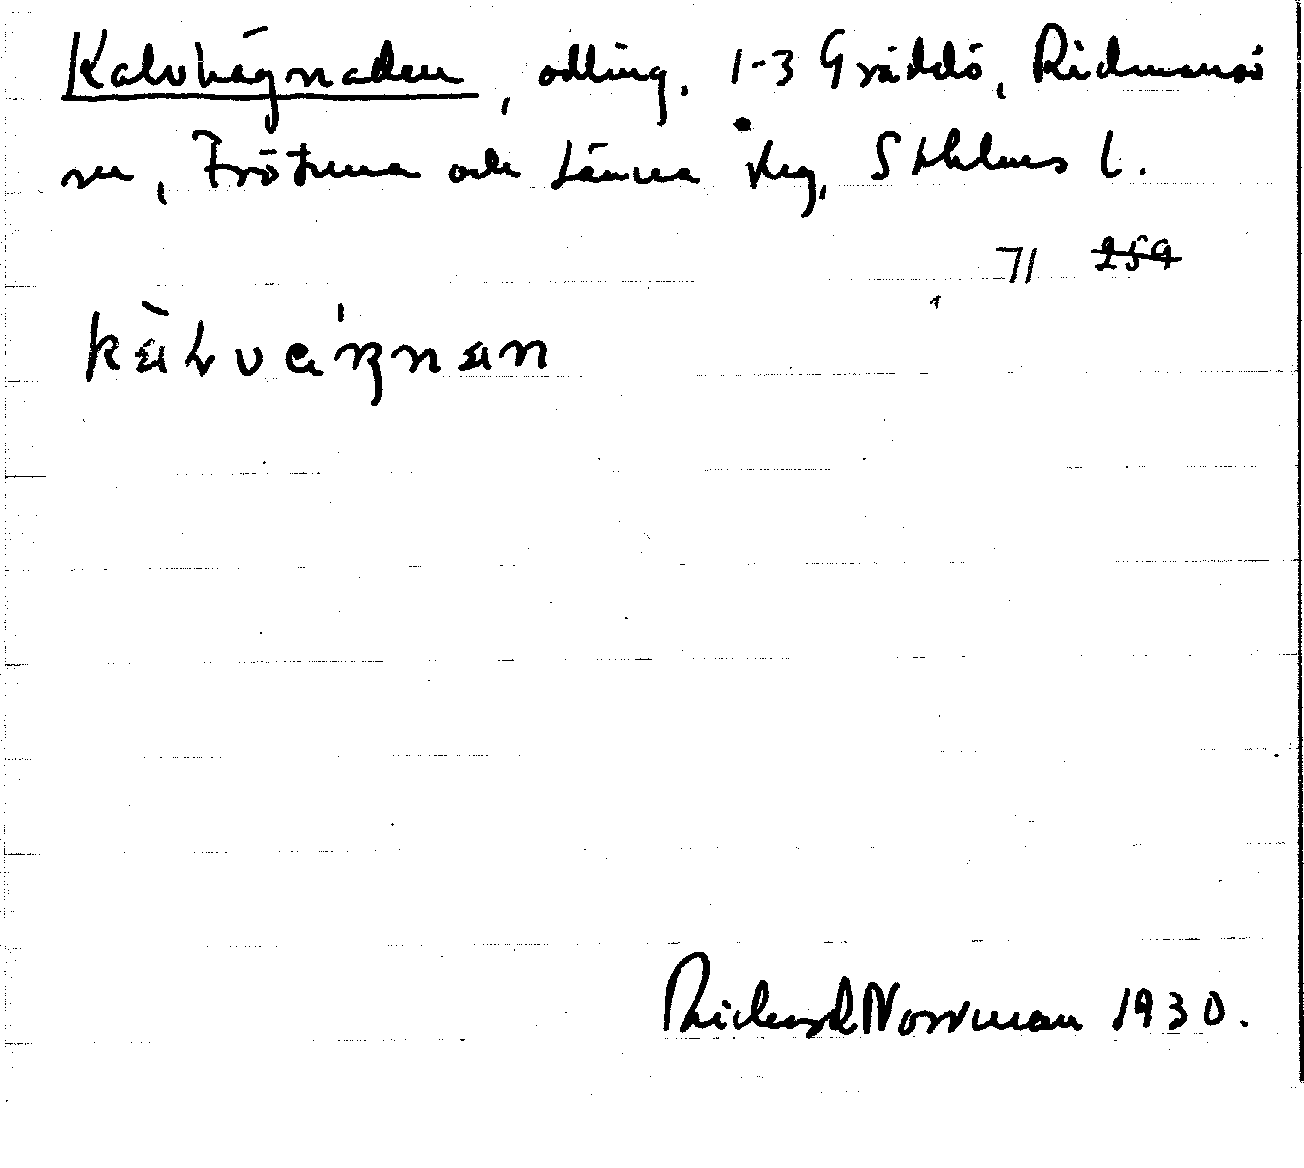 Kalvhägnaden, odling, 1-3 Gräddö, Rådmansö
sn, Frötuna och Länna skg, Sthlms l.
71 259
Richard Norrman 1930.